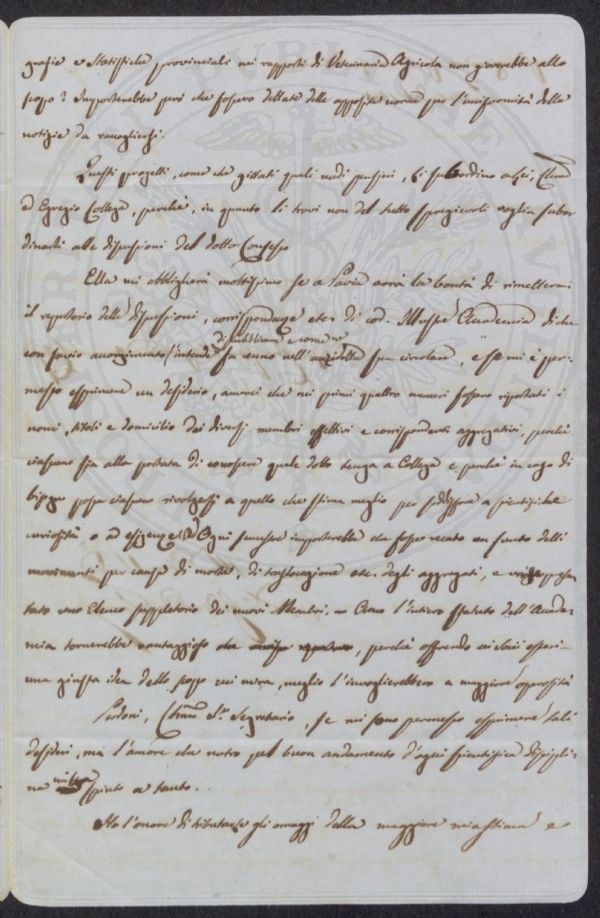 grafie e Statistiche provinciali nei rapporti di Veterinaria Agricola non gioverebbe allo
scopo? Importerebbe però che fossero dettate delle apposite norme per l'uniformità delle
notizie da raccogliersi.
Questi progetti, come che gittati quali nudi pensieri, li subordino a Lei,
ed Egregio College, perchè, in quanto li trovi non del tutto spregievoli voglia subor
dinarli alle discussioni del dotto Consesso
Ella mi obbligherà moltissimo se a Pavia avrà la bontà di rimettermi
il repertorio delle discussioni, corrispondenze etc. di cod. Illustre Accademia di che
di pubblicare come ne
con savio accorgimento l'intende fa cenno nell' sua circolare, e se mi è per-
messo esprimere un desiderio, amerei che nei primi quattro numeri fossero riportati i
nomi, titoli e domicilio dei diversi membri effettivi e corrispondenti aggregativi, perchè
ciascuno sia alla portata di conoscere quale dotto tenga a Collega e perchè in caso di
bisogno possa ciascuno rivolgersi a quello che stima meglio per soddisfare a scientifiche
curiosità o ad esigenze. Ogni semestre importerebbe che fosse recato un sunto delli
movimenti per causa di morte, di traslocazione etc. degli aggregati, e
tato uno Elenco suppletorio dei nuovi Membri, – Come l'intiero statuto dell'Accade-
mia tornerebbe vantaggioso, perchè offrendo ai soci
una giusta idea dello scopo cui mira, meglio l'invoglierebbero a maggiore operosità
Perdoni, Sr. Segretario, se mi sono permesso esprimere tali
desideri, ma l'amore che nutro pel buon andamento d'ogni scientifica discipli-
na mi ha spinto a tanto.
Ho l'onore di tributarle gli omaggi della maggiore mia stima e